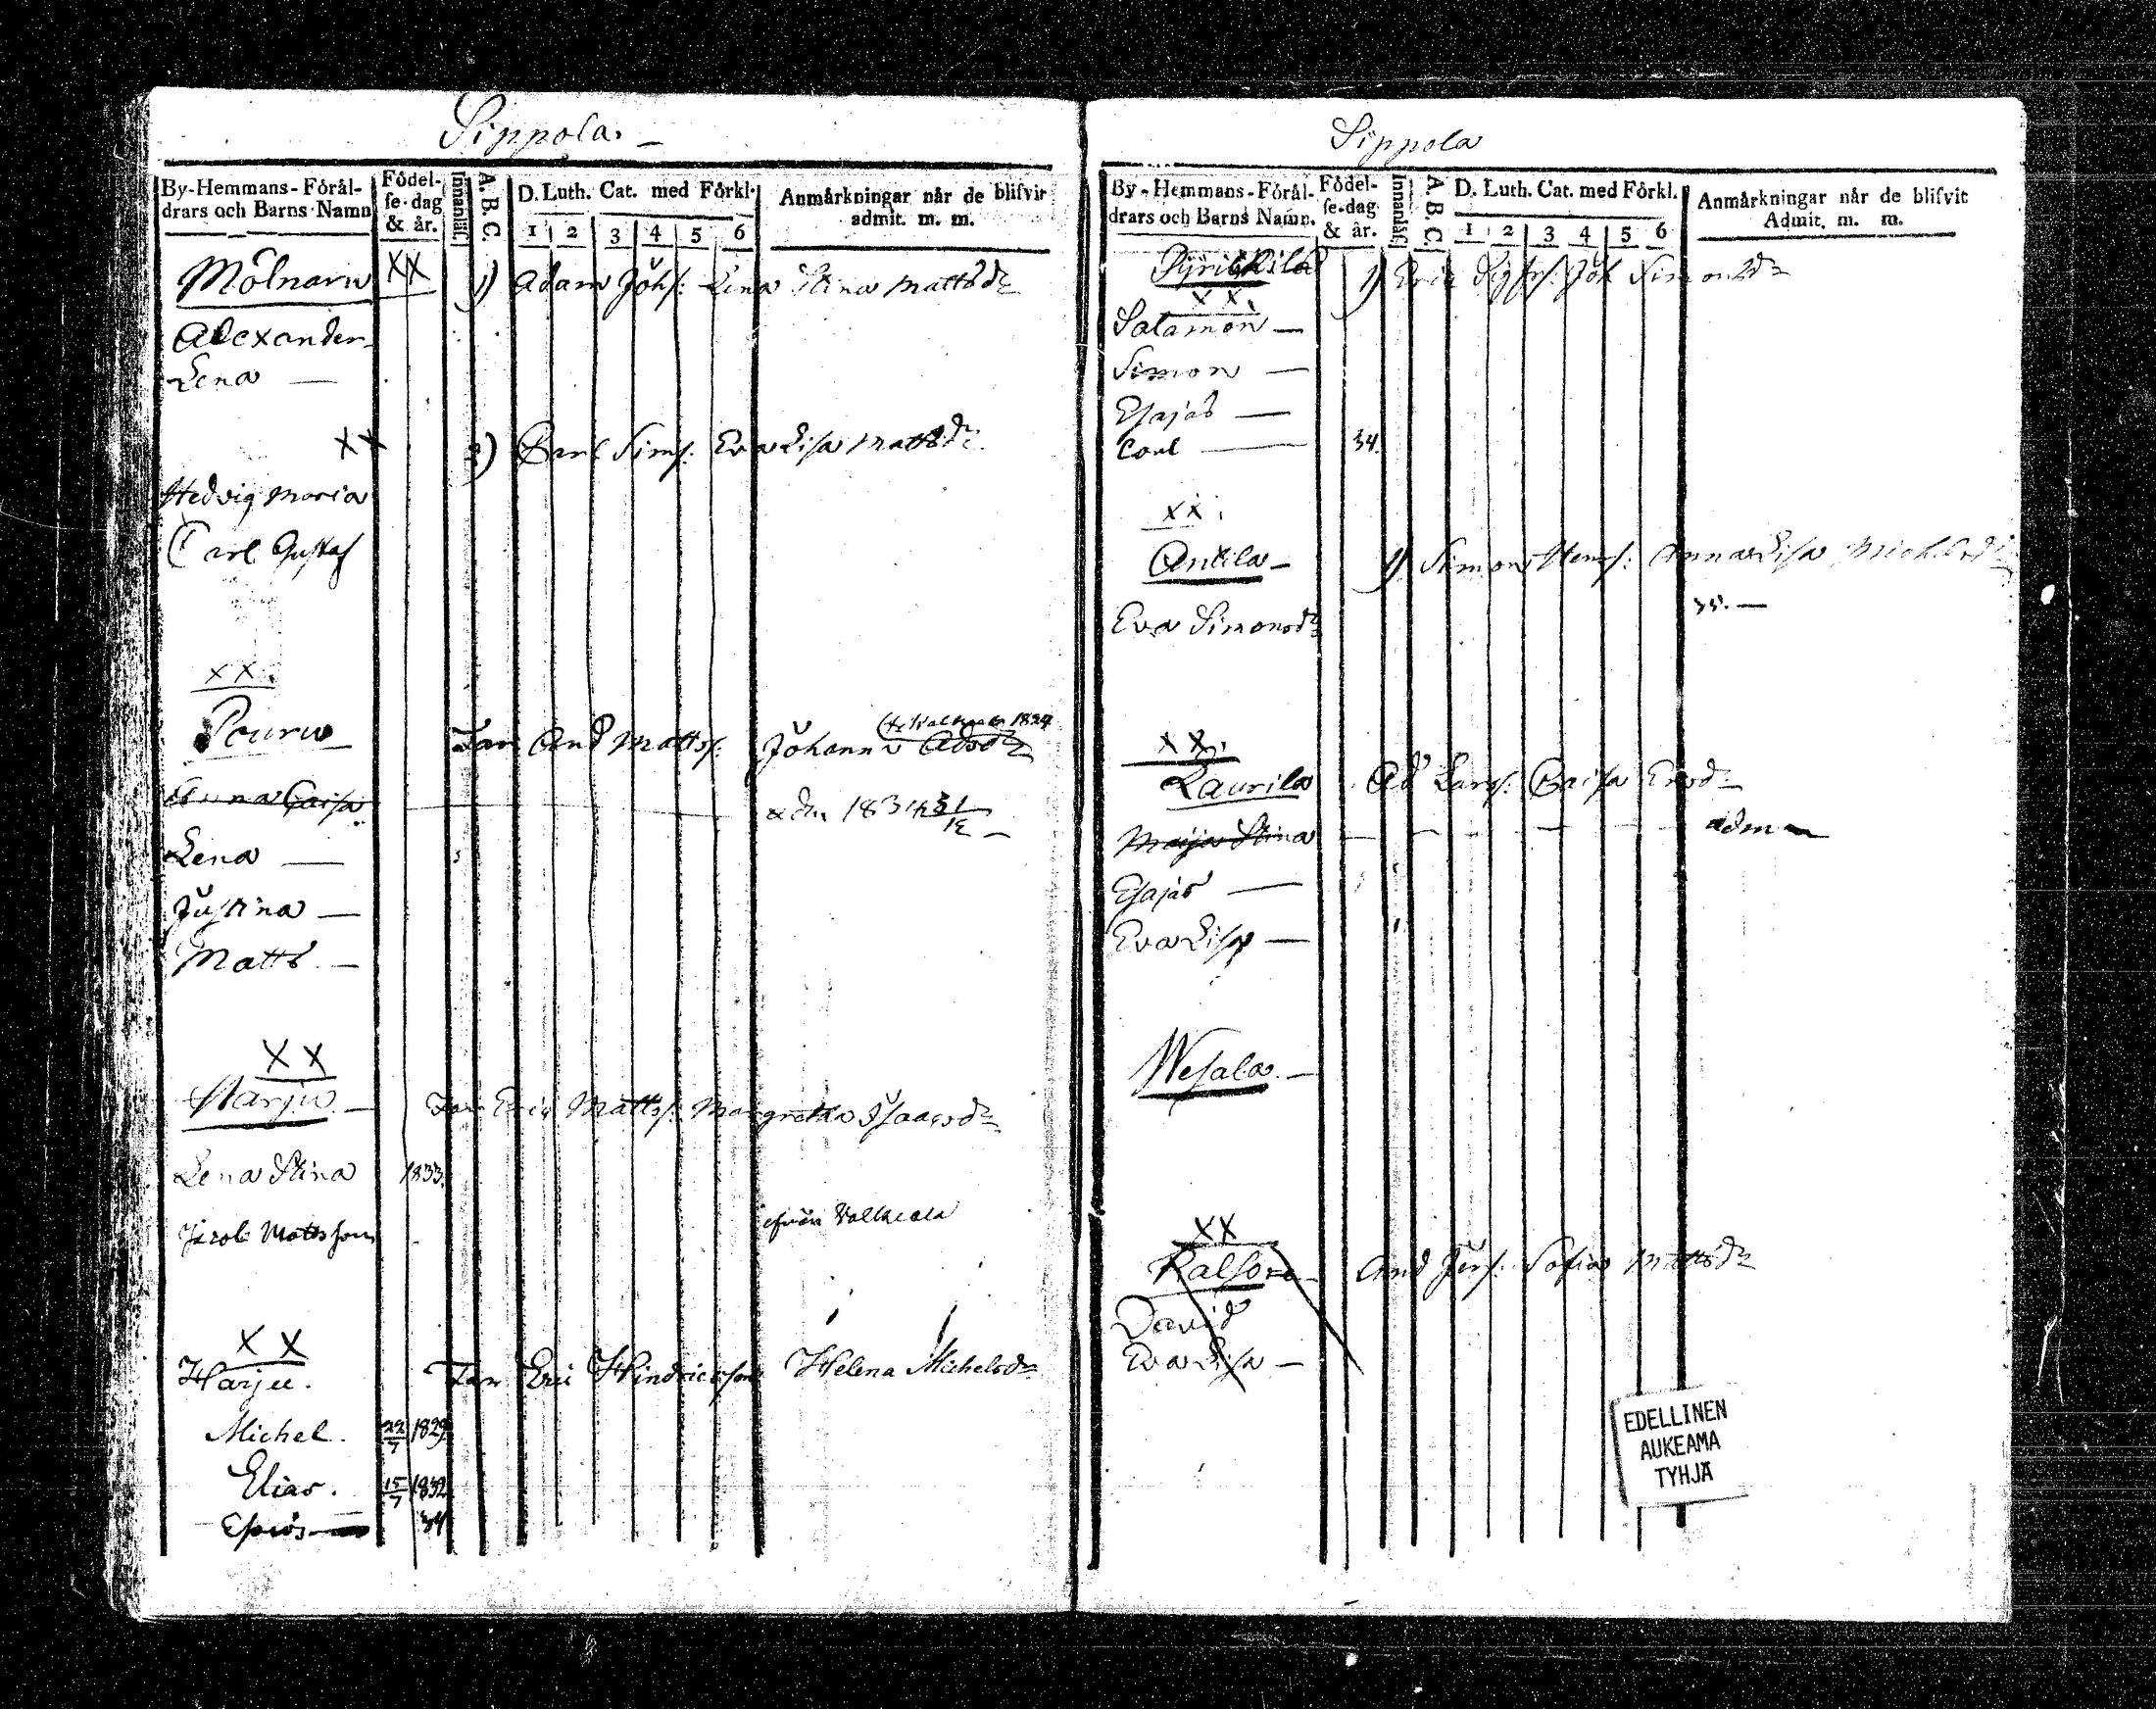 Sippola.
By-Hemmans-Föräl-
drars och Barns Namn
Födel-
se-dag
& år.
Innanläs.
A. B. C.
D. Luth. Cat. med Förkl.
1 2 3 4 5 6
Anmärkningar når de blifvit
admit. m. m.
Mölnaru XX 1) Adam Johs: Lena Stina Mattsdr
Alexander
Lena —
XX 2) Carl Sims: Eva Lisa Mattsdr
Hedvig Maria
Carl Gustaf
XX.
Pouru And Matts: Johanna
1834
Anna Caisa 1834 31/12
Lena —
Justina —
Matts —
XX
Harju — Eric Matts: Margretha Isaacsdr
Lena Stina 1833.
Jacob Mattsson från Valkeala
XX
Harju. Eric Hindricsson Helena Michelsdr
Michel. 22/7 1829
Elias. 15/7 1832
34
Sippola
By-Hemmans-Förål-
drars och Barns Namn.
Födel-
se-dag
& år.
Innanläs.
A. B. C.
D. Luth. Cat. med Förkl.
1 2 3 4 5 6
Anmärkningar når de blifvit
Admit. m. m.
1) Eric Sigfrs: Simonsdr
XX.
Salamon —
Simon —
Esajas —
Carl — 34.
XX.
Antila — 1) Simon Henrs: Anna Lisa Michelsdr
Eva Simonsdr
XX.
Laurila Ad Lars: Caisa Ersdr
Maija Stina — adm
Esajas —
Eva Lisa —
Wesala —
XX
And Sofia Mattsdr
David
Eva Lisa —
EDELLINEN
AUKEAMA
TYHJÄ